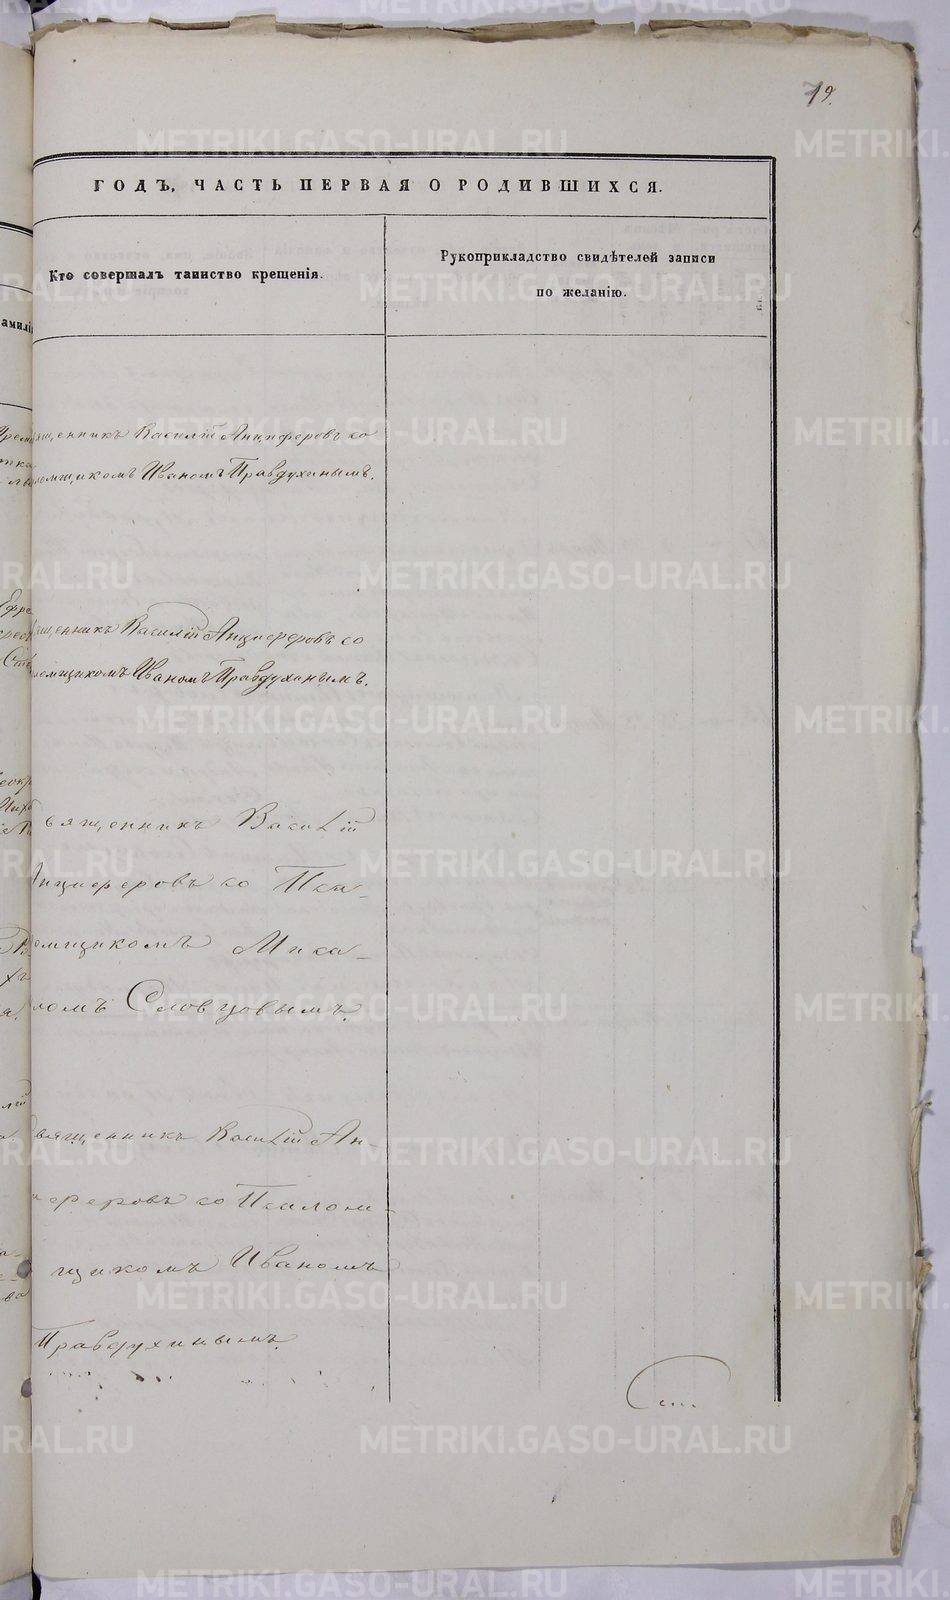 79.
ГОДЪ, ЧАСТЬ ПЕРВАЯ О РОДИВШИХСЯ.
Кто совершалъ таинство крещенія.
Рукоприкладство свидѣтелей записи
по желанію.
амилі
ященникъ Василій Анциферовъ со
ломщикомъ Иваномъ Правдухинымъ.
ященникъ Василій Анциферовъ со
ломщикомъ Иваномъ Правдухинымъ.
вященникъ Василій
Анциферовъ со Пса-
ломщикомъ Миха-
ломъ Словцовымъ.
Священникъ Василій Ан-
циферовъ со Псалом-
щикомъ Иваномъ
Правдухинымъ.
METRIKI.GASO-URAL.RU